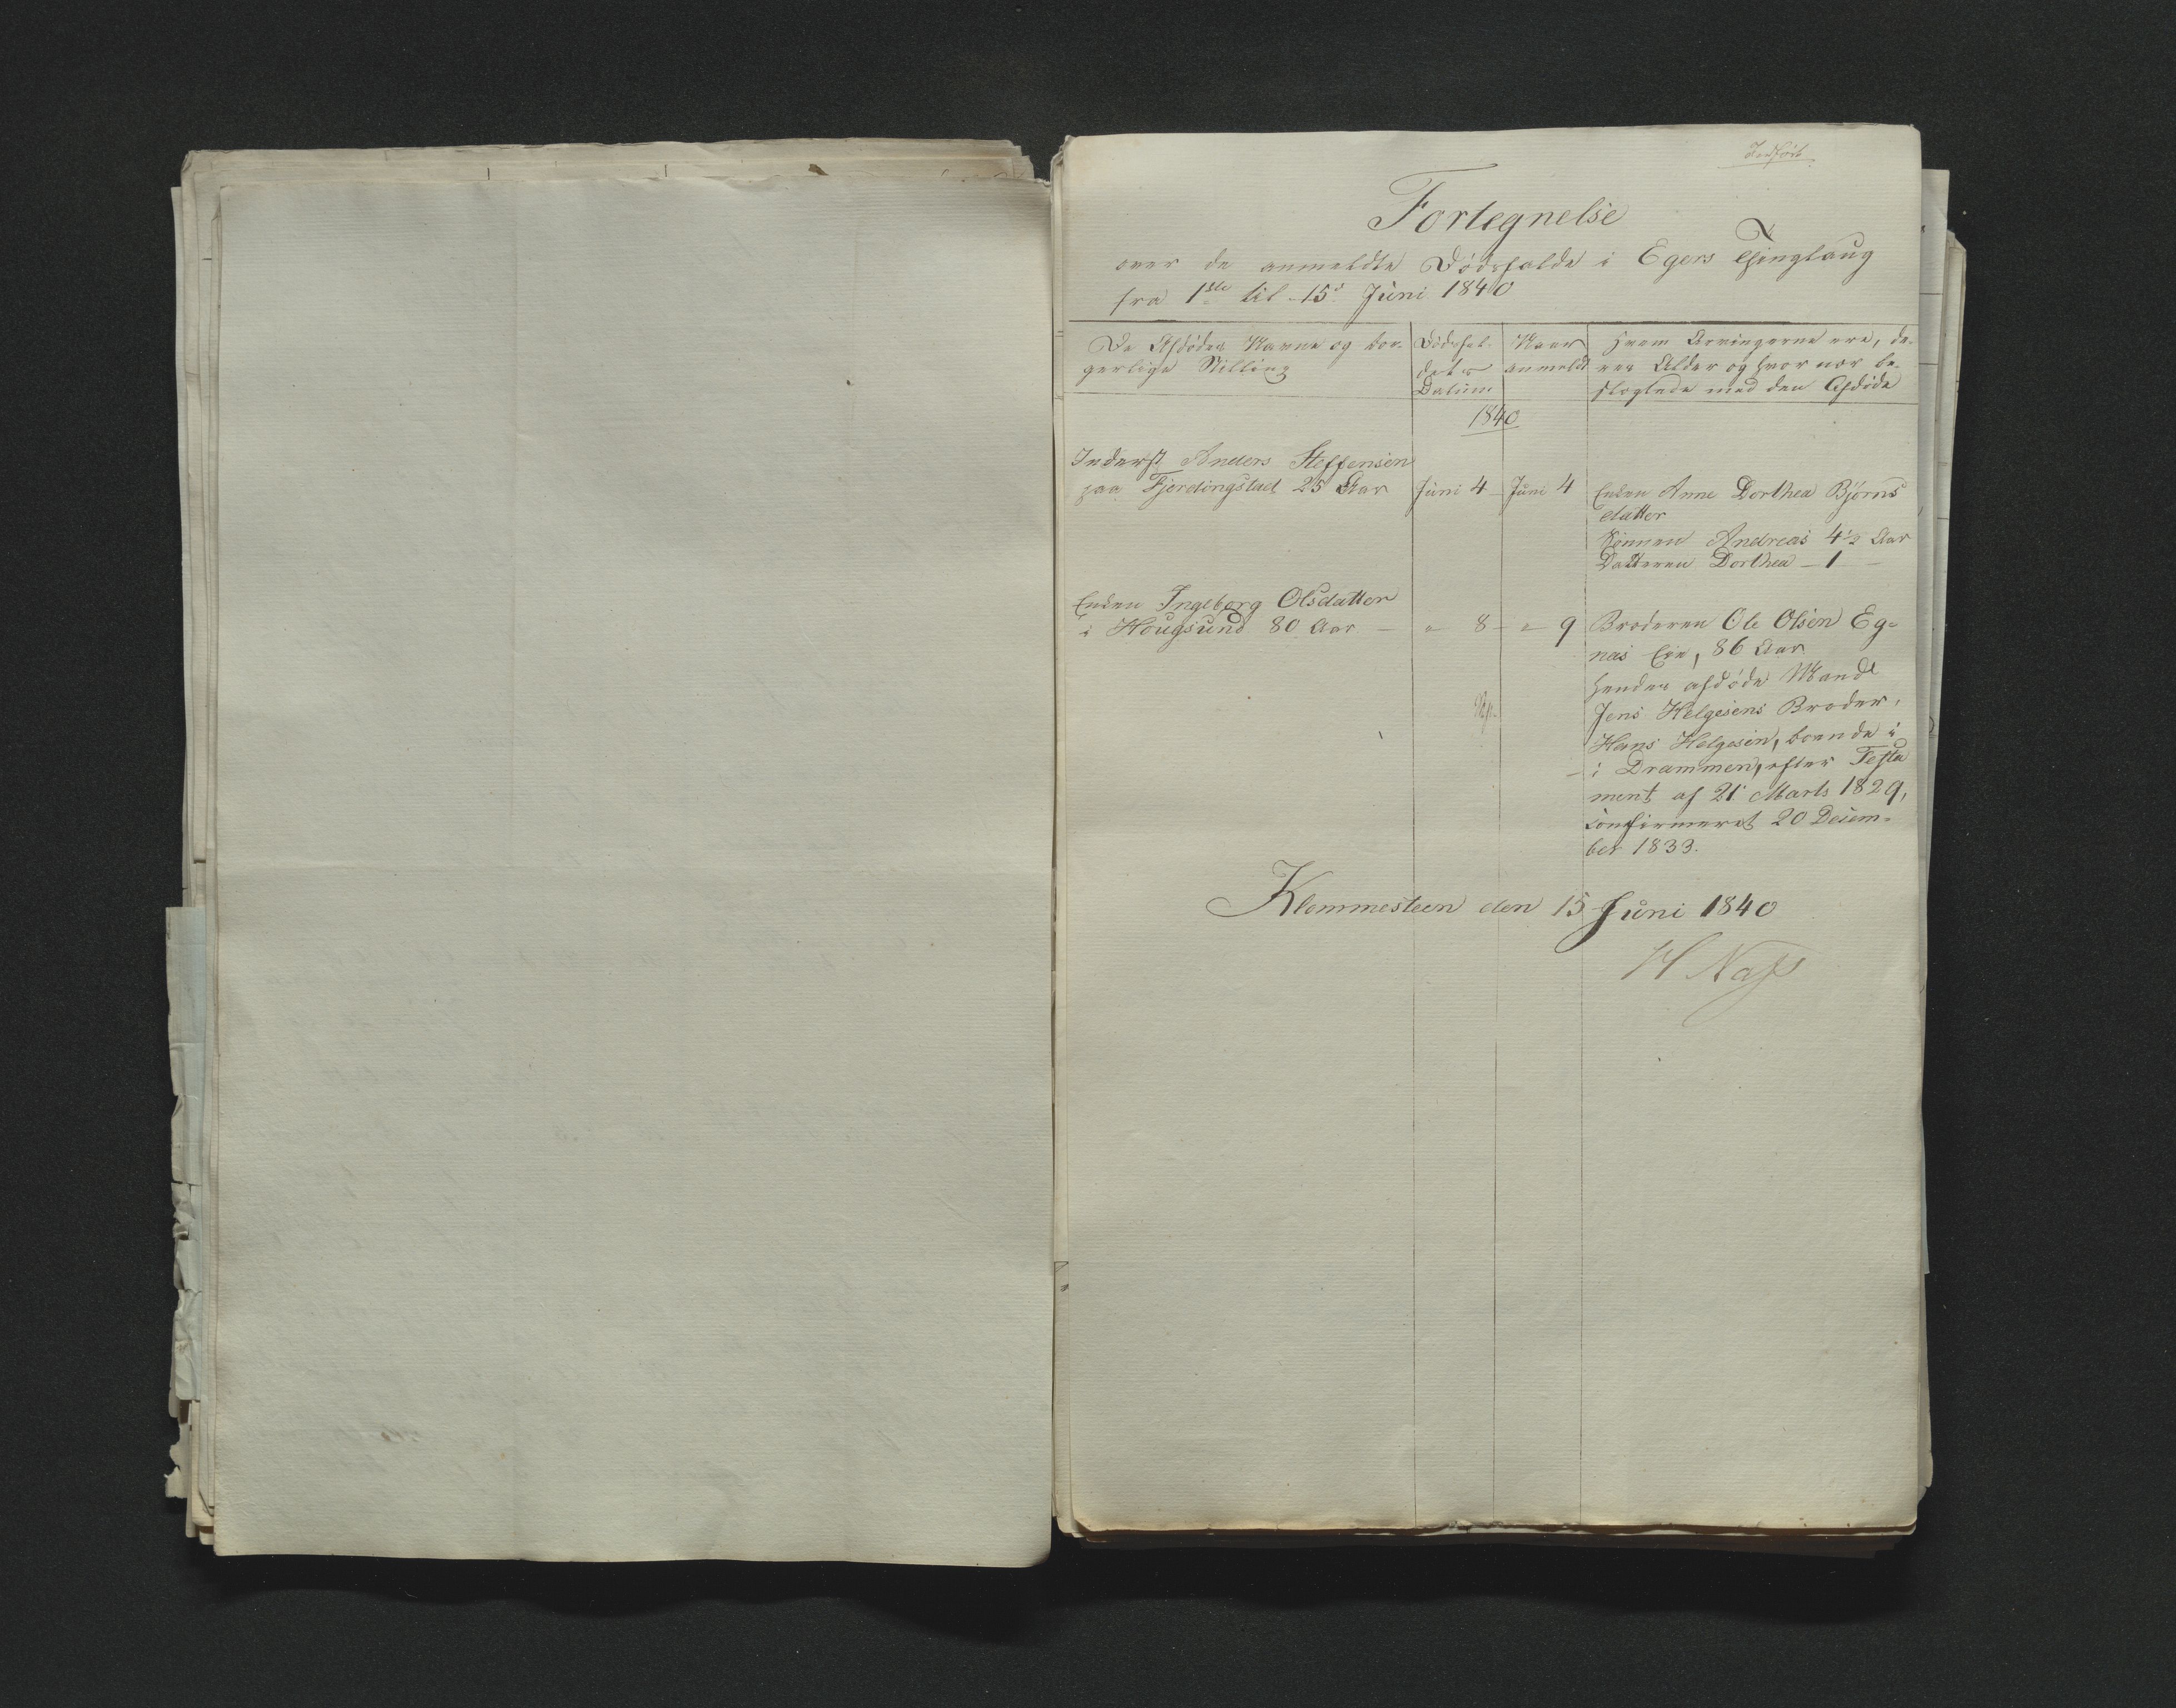 Indført
Fortegnelse
over de anmeldte Dødsfalde i Egers Thinglaug
fra 1ste til 15d Juni 1840
De Afdødes Navne og bor-
gerlige Stilling
Dødsfal-
dets
Datum
Naar
anmeldt
Hvem Arvingerne ere, de-
res Alder og hvor nær be-
slægtede med den Afdøde
1840
Inderst Anders Steffensen
paa Fjerdingstad 25 Aar Juni 4 Juni 4 Enken Anne Dorthea Bjørns
datter
Sønnen Andreas 4 1/2 Aar
Datteren Dorthea - 1 -
Enken Ingeborg Olsdatter
i Hougsund 80 Aar - " 8 - " 9 Broderen Ole Olsen Eg-
nes Eie, 86 Aar
Hendes afdøde Mand
Jens Helgesens Broder,
Hans Helgesen, boende i
i Drammen, efter Testa
ment af 21 Marts 1829,
confirmeret 20 Decem-
ber 1833.
Klommesteen den 15 Juni 1840
H Nass